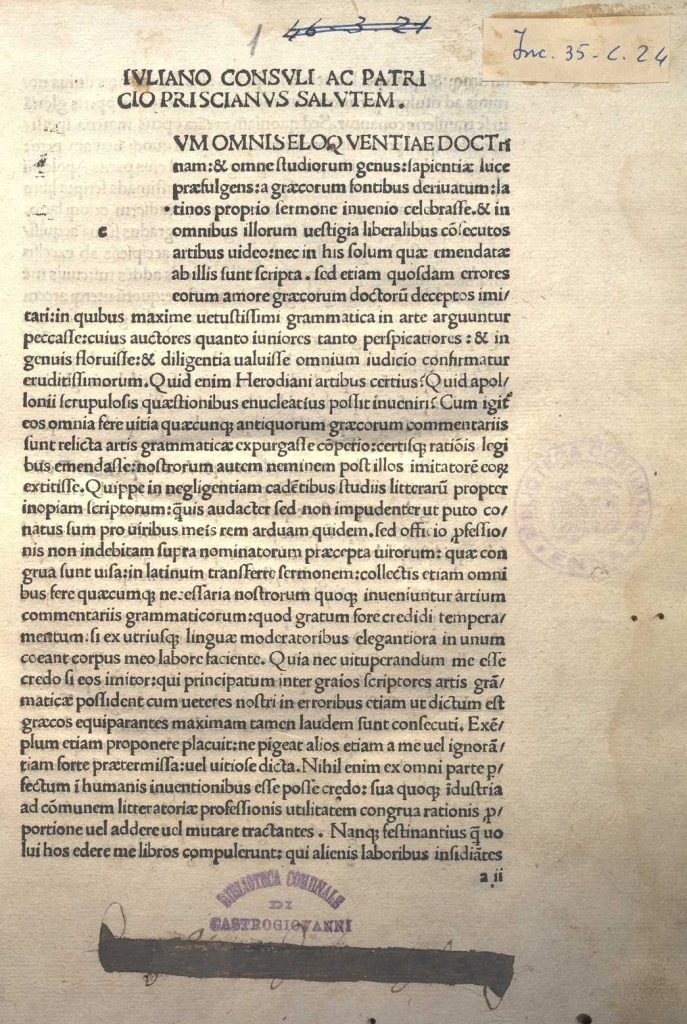 1 46-3-21
Inc. 35-C. 24
IVLIANO CONSVLI AC PATRI
CIO PRISCIANVS SALVTEM.
VM OMNIS ELOQVENTIAE DOCTri
nam:& omne studiorum genus:sapientiæ luce
præfulgens:a græcorum fontibus deriuatum:la
tinos proprio sermone inuenio celebrasse.& in
e omnibus illorum uestigia liberalibus cōsecutos
artibus uideo:nec in his solum quæ emendatæ
ab illis sunt scripta. sed etiam quosdam errores
eorum amore græcorum doctorū deceptos imi/
tari:in quibus maxime uetustissimi grammatica in arte arguuntur
peccasse:cuius auctores quanto iuniores tanto perspicatiores:& in
genuis floruisse:& diligentia ualuisse omnium iudicio confirmatur
eruditissimorum.Quid enim Herodiani artibus certius?Quid apol/
lonii scrupulosis quæstionibus enucleatius possit inueniri? Cum igit᷑
eos omnia fere uitia quæcunq; antiquorum græcorum commentariis
sunt relicta artis grammaticæ expurgasse coperio:certisq; ratiōis legi
bus emendasse:nostrorum autem neminem post illos imitatorē eoꝝ
extitisse.Quippe in negligentiam cadētibus studiis litterarū propter
inopiam scriptorum:q̃uis audacter sed non impudenter ut puto co/
natus sum pro uiribus meis rem arduam quidem.sed officio ꝓfessio/
nis non indebitam supra nominatorum præcepta uirorum: quæ con
grua sunt uisa:in latinum transferre sermonem:collectis etiam omni
bus fere quæcumq; necessaria nostrorum quoq; inueniuntur artium
commentariis grammaticorum:quod gratum fore credidi tempera/
mentum:si ex utriusq; linguæ moderatoribus elegantiora in unum
coeant corpus meo labore faciente. Quia nec uituperandum me esse
credo si eos imitor:qui principatum inter graios scriptores artis grā/
maticæ possident cum ueteres nostri in erroribus etiam ut dictum est
græcos equiparantes maximam tamen laudem sunt consecuti. Exē/
plum etiam proponere placuit:ne pigeat alios etiam a me uel ignorā/
tiam forte prætermissa:uel uitiose dicta.Nihil enim ex omni parte ꝑ/
fectum ī humanis inuentionibus esse posse credo: sua quoq; īdustria
ad cōmunem litteratoriæ professionis utilitatem congrua rationis ꝓ/
portione uel addere uel mutare tractantes. Nanq; festinantius q̃ uo
lui hos edere me libros compulerunt: qui alienis laboribus insidiātes
a ii
BIBLIOTECA COMUNALE
DI
CASTROGIOVANNI